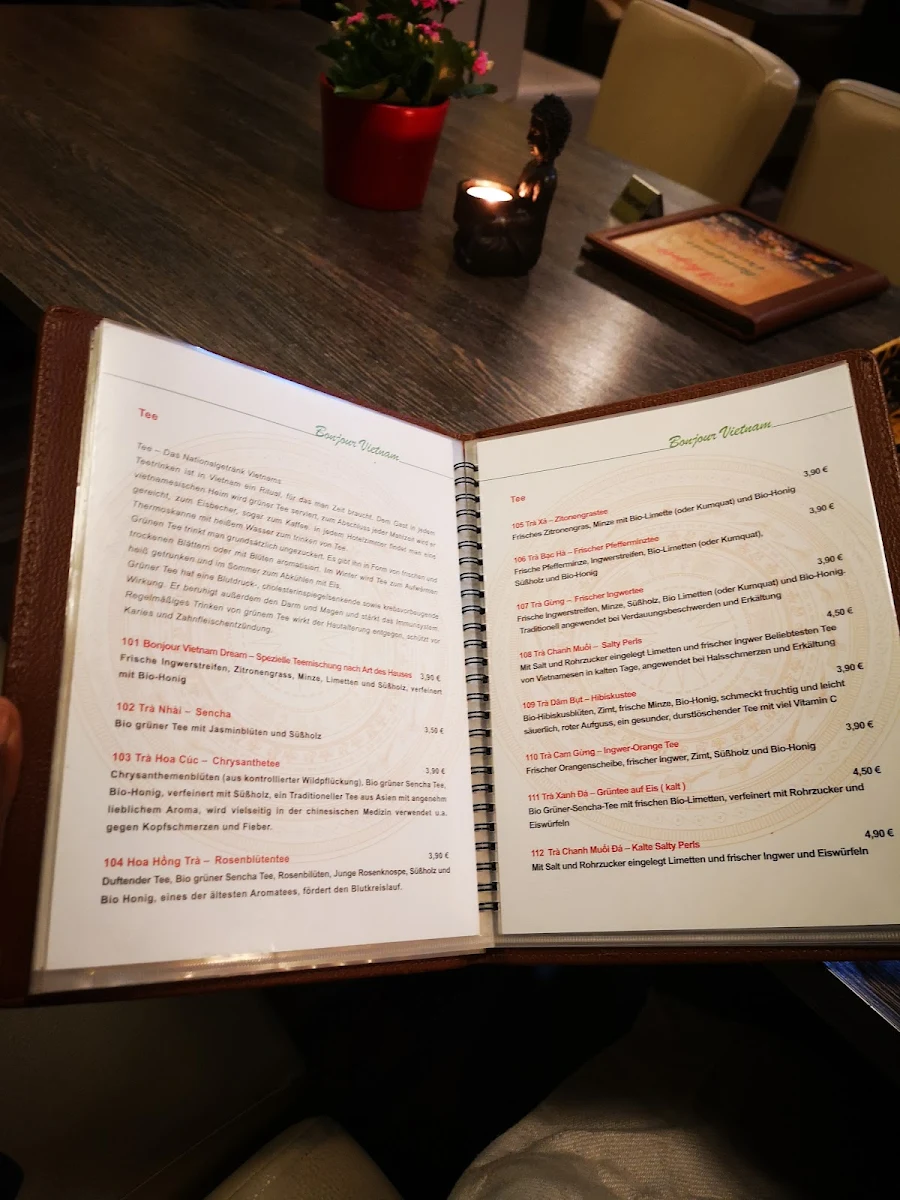 Tee
Bonjour Vietnam
Tee – Das Nationalgetränk Vietnams
Teetrinken ist in Vietnam ein Ritual, für das man Zeit braucht. Dem Gast in jedem
vietnamesischen Heim wird grüner Tee serviert, zum Abschluss jeder Mahlzeit wird er
gereicht, zum Eisbecher, sogar zum Kaffee. In jedem Hotelzimmer findet man eine
Thermoskanne mit heißem Wasser zum trinken von Tee.
Grünen Tee trinkt man grundsätzlich ungezuckert. Es gibt ihn in Form von frischen und
trockenen Blättern oder mit Blüten aromatisiert. Im Winter wird Tee zum Aufwärmen
heiß getrunken und im Sommer zum Abkühlen mit Eis.
Grüner Tee hat eine Blutdruck-, cholesterinspiegelsenkende sowie krebsvorbeugende
Wirkung. Er beruhigt außerdem den Darm und Magen und stärkt das Immunsystem.
Regelmäßiges Trinken von grünem Tee wirkt der Hautalterung entgegen, schützt vor
Karies und Zahnfleischentzündung.
101 Bonjour Vietnam Dream – Spezielle Teemischung nach Art des Hauses 3,90 €
Frische Ingwerstreifen, Zitronengrass, Minze, Limetten und Süßholz, verfeinert
mit Bio-Honig
102 Trà Nhài – Sencha
Bio grüner Tee mit Jasminblüten und Süßholz 3,50 €
103 Trà Hoa Cúc – Chrysanthetee 3,90 €
Chrysanthemenblüten (aus kontrollierter Wildpflückung), Bio grüner Sencha Tee,
Bio-Honig, verfeinert mit Süßholz, ein Traditioneller Tee aus Asien mit angenehm
lieblichem Aroma, wird vielseitig in der chinesischen Medizin verwendet u.a.
gegen Kopfschmerzen und Fieber.
104 Hoa Hồng Trà – Rosenblütentee 3,90 €
Duftender Tee, Bio grüner Sencha Tee, Rosenblüten, Junge Rosenknospe, Süßholz und
Bio Honig, eines der ältesten Aromatees, fördert den Blutkreislauf.
Bonjour Vietnam
Tee
105 Trà Xả – Zitonengrastee 3,90 €
Frisches Zitronengras, Minze mit Bio-Limette (oder Kumquat) und Bio-Honig
106 Trà Bạc Hà – Frischer Pfefferminztee 3,90 €
Frische Pfefferminze, Ingwerstreifen, Bio-Limetten (oder Kumquat),
Süßholz und Bio-Honig
107 Trà Gừng – Frischer Ingwertee 3,90 €
Frische Ingwerstreifen, Minze, Süßholz, Bio Limetten (oder Kumquat) und Bio-Honig.
Traditionell angewendet bei Verdauungsbeschwerden und Erkältung
108 Trà Chanh Muối – Salty Perls 4,50 €
Mit Salt und Rohrzucker eingelegt Limetten und frischer Ingwer Beliebtesten Tee
von Vietnamesen in kalten Tage, angewendet bei Halsschmerzen und Erkältung
109 Trà Dâm Bụt – Hibiskustee 3,90 €
Bio-Hibiskusblüten, Zimt, frische Minze, Bio-Honig, schmeckt fruchtig und leicht
säuerlich, roter Aufguss, ein gesunder, durstlöschender Tee mit viel Vitamin C
110 Trà Cam Gừng – Ingwer-Orange Tee 3,90 €
Frischer Orangenscheibe, frischer ingwer, Zimt, Süßholz und Bio-Honig
111 Trà Xanh Đá – Grüntee auf Eis ( kalt ) 4,50 €
Bio Grüner-Sencha-Tee mit frischen Bio-Limetten, verfeinert mit Rohrzucker und
Eiswürfeln
112 Trà Chanh Muối Đá – Kalte Salty Perls 4,90 €
Mit Salt und Rohrzucker eingelegt Limetten und frischer Ingwer und Eiswürfeln